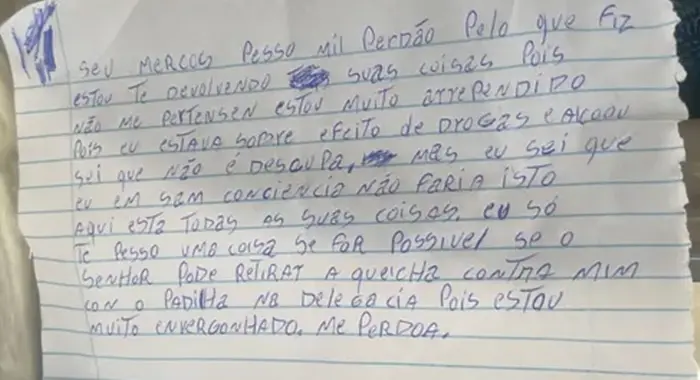 SEU MERCOS PESSO MIL PERDÃO PELO QUE FIZ
ESTOU TE DEVOLVENDO SUAS COISAS POIS
NÃO ME PERTENSEN ESTOU MUITO ARREPENDIDO
POIS EU ESTAVA SOBRE EFEITO DE DROGAS E ALCOOU
SEI QUE NÃO É DESCUPA, MAS EU SEI QUE
EU EM SAM CONCIÊNCIA NÃO FARIA ISTO
AQUI ESTA TODAS AS SUAS COISAS. EU SÓ
TE PESSO UMA COISA SE FOR POSSIVEL SE O
SENHOR PODE RETIRAR A QUEICHA CONTRA MIM
CON O PADILHA NA DELEGACIA POIS ESTOU
MUITO ENVERGONHADO. ME PERDOA.